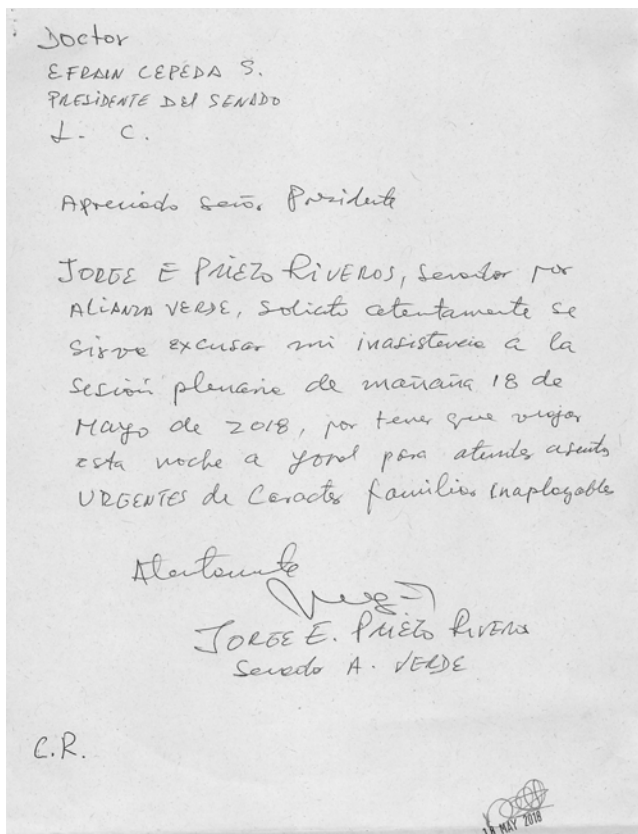 Doctor
EFRAIN CEPEDA S.
PRESIDENTE DEL SENADO
L. C.
Apreciado señor Presidente
JORGE E PRIETO RIVEROS, Senador por
ALIANZA VERDE, solicito atentamente se
sirva excusar mi inasistencia a la
sesión plenaria de mañana 18 de
Mayo de 2018, por tener que viajar
esta noche a Yopal para atender asuntos
URGENTES de Caracter familiar inaplazables
Atentamente
JORGE E. PRIETO RIVEROS
Senado A. VERDE
C.R.
18 MAY 2018